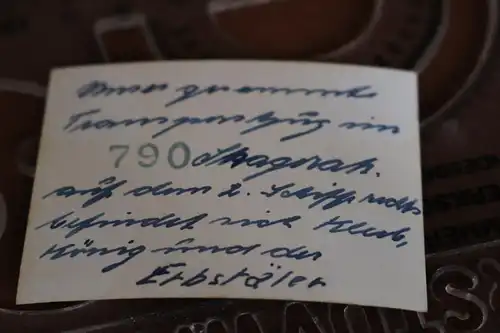 Unser gesammte
Transportzug im
790 Skagerak.
auf dem 2. Schiff rechts
befindet sich Kleb,
König und der
Erbstäler